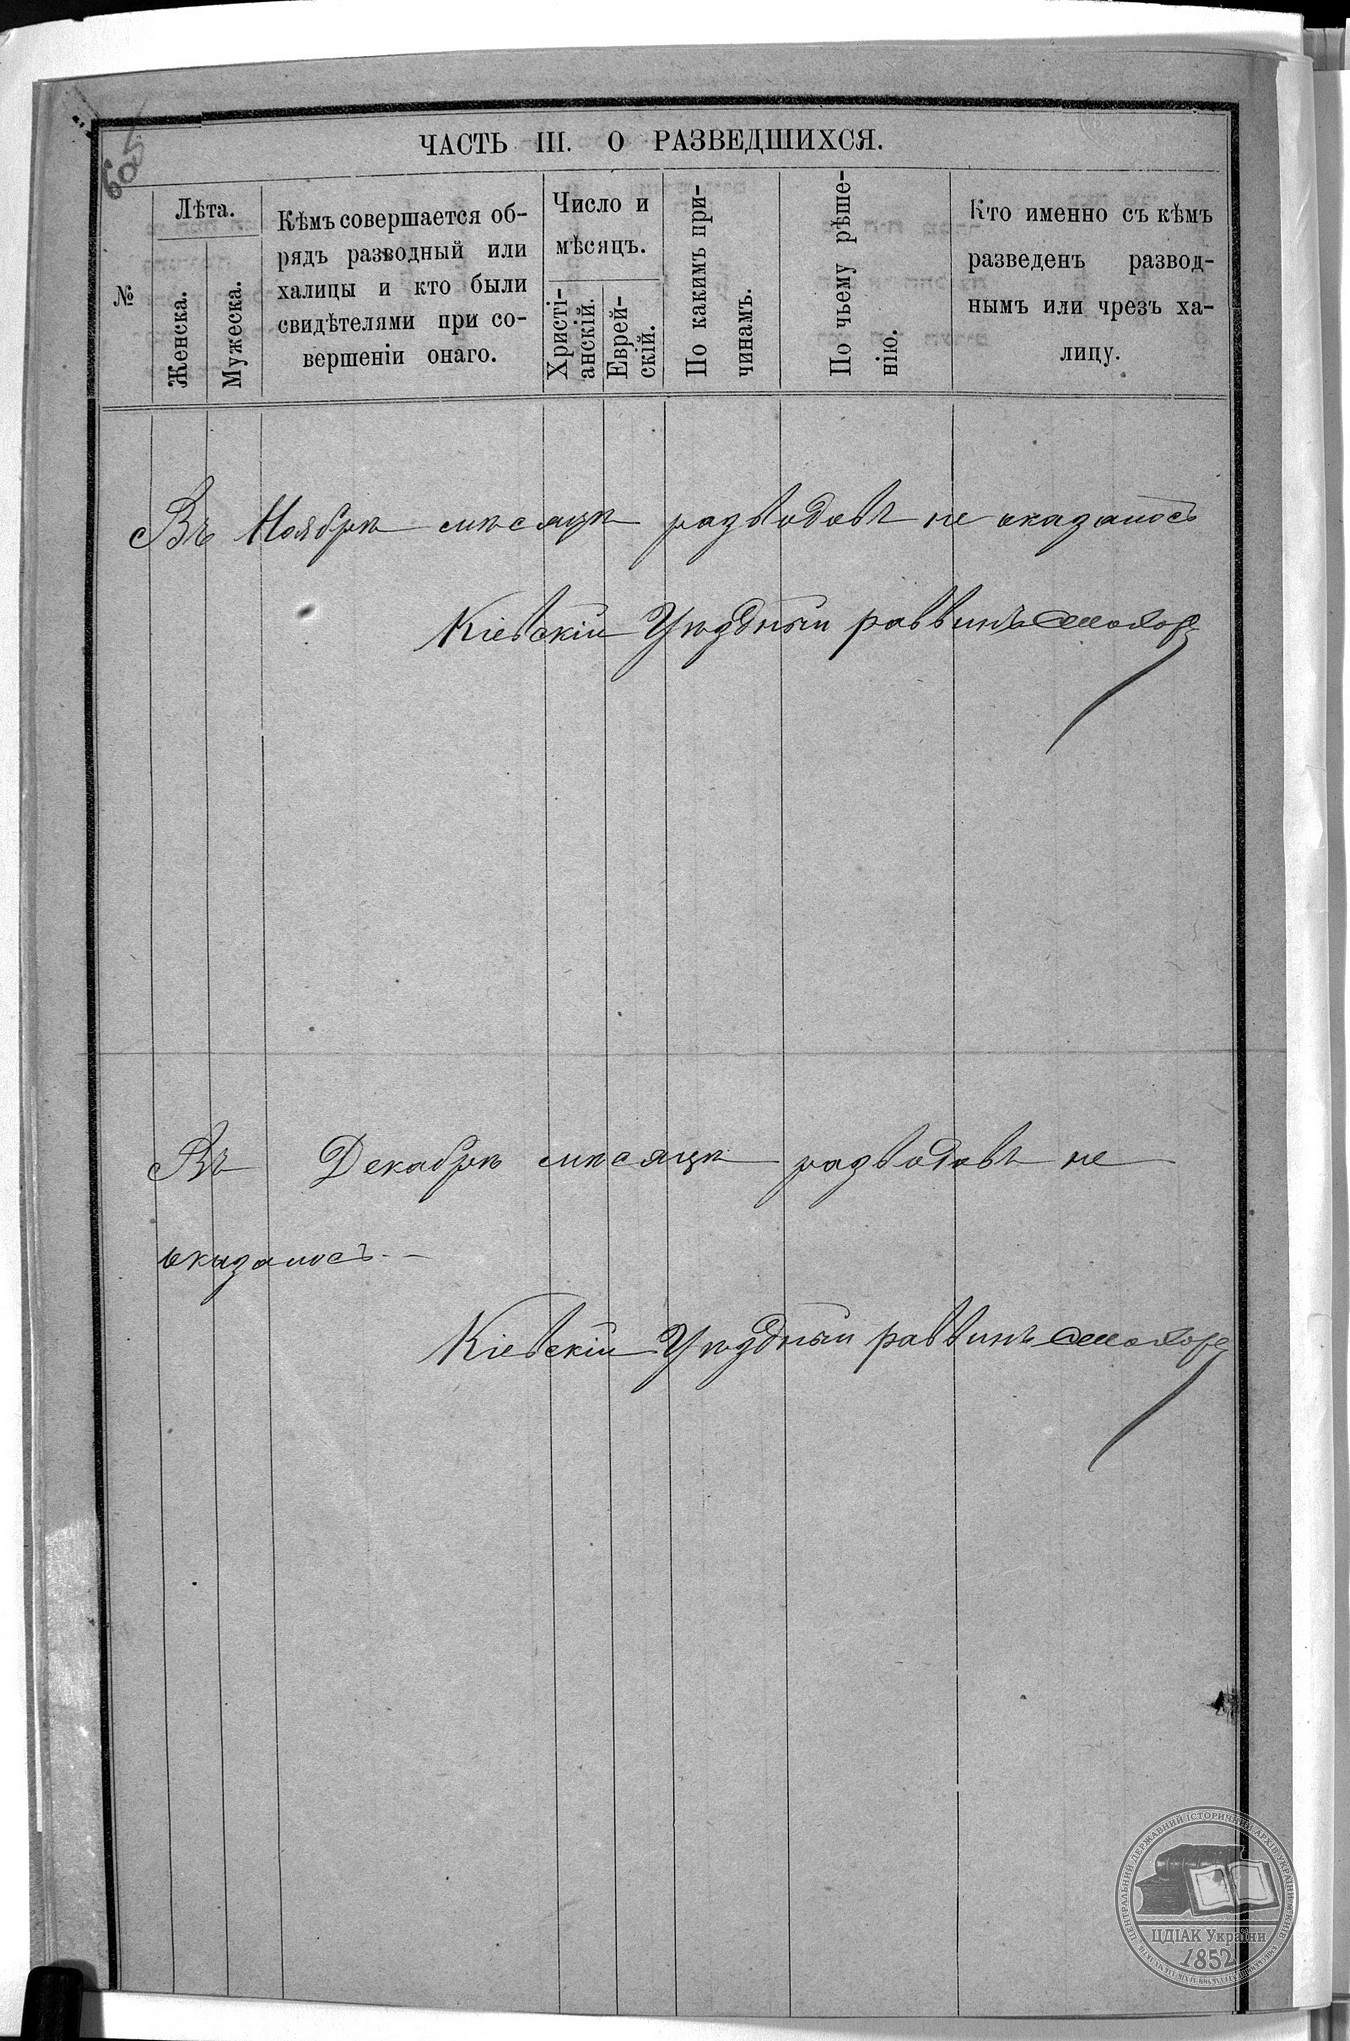 605
ЧАСТЬ III. О РАЗВЕДШИХСЯ.
№
Лѣта.
Женска.
Мужеска.
Кѣмъ совершается об-
рядъ разводный или
халицы и кто были
свидѣтелями при со-
вершеніи онаго.
Число и
мѣсяцъ.
Христі-
анскій.
Еврей-
скій.
По какимъ при-
чинамъ.
По чьему рѣше-
нію.
Кто именно съ кѣмъ
разведенъ развод-
нымъ или чрезъ ха-
лицу.
Въ Ноябрѣ мѣсяцѣ разводовъ не оказалось
Кіевскій Уѣздный раввинъ
Въ Декабрѣ мѣсяцѣ разводовъ не
оказалось. —
Кіевскій Уѣздный раввинъ
ЦЕНТРАЛЬНИЙ ДЕРЖАВНИЙ ІСТОРИЧНИЙ АРХІВ УКРАЇНИ
ЦДІАК України
1852